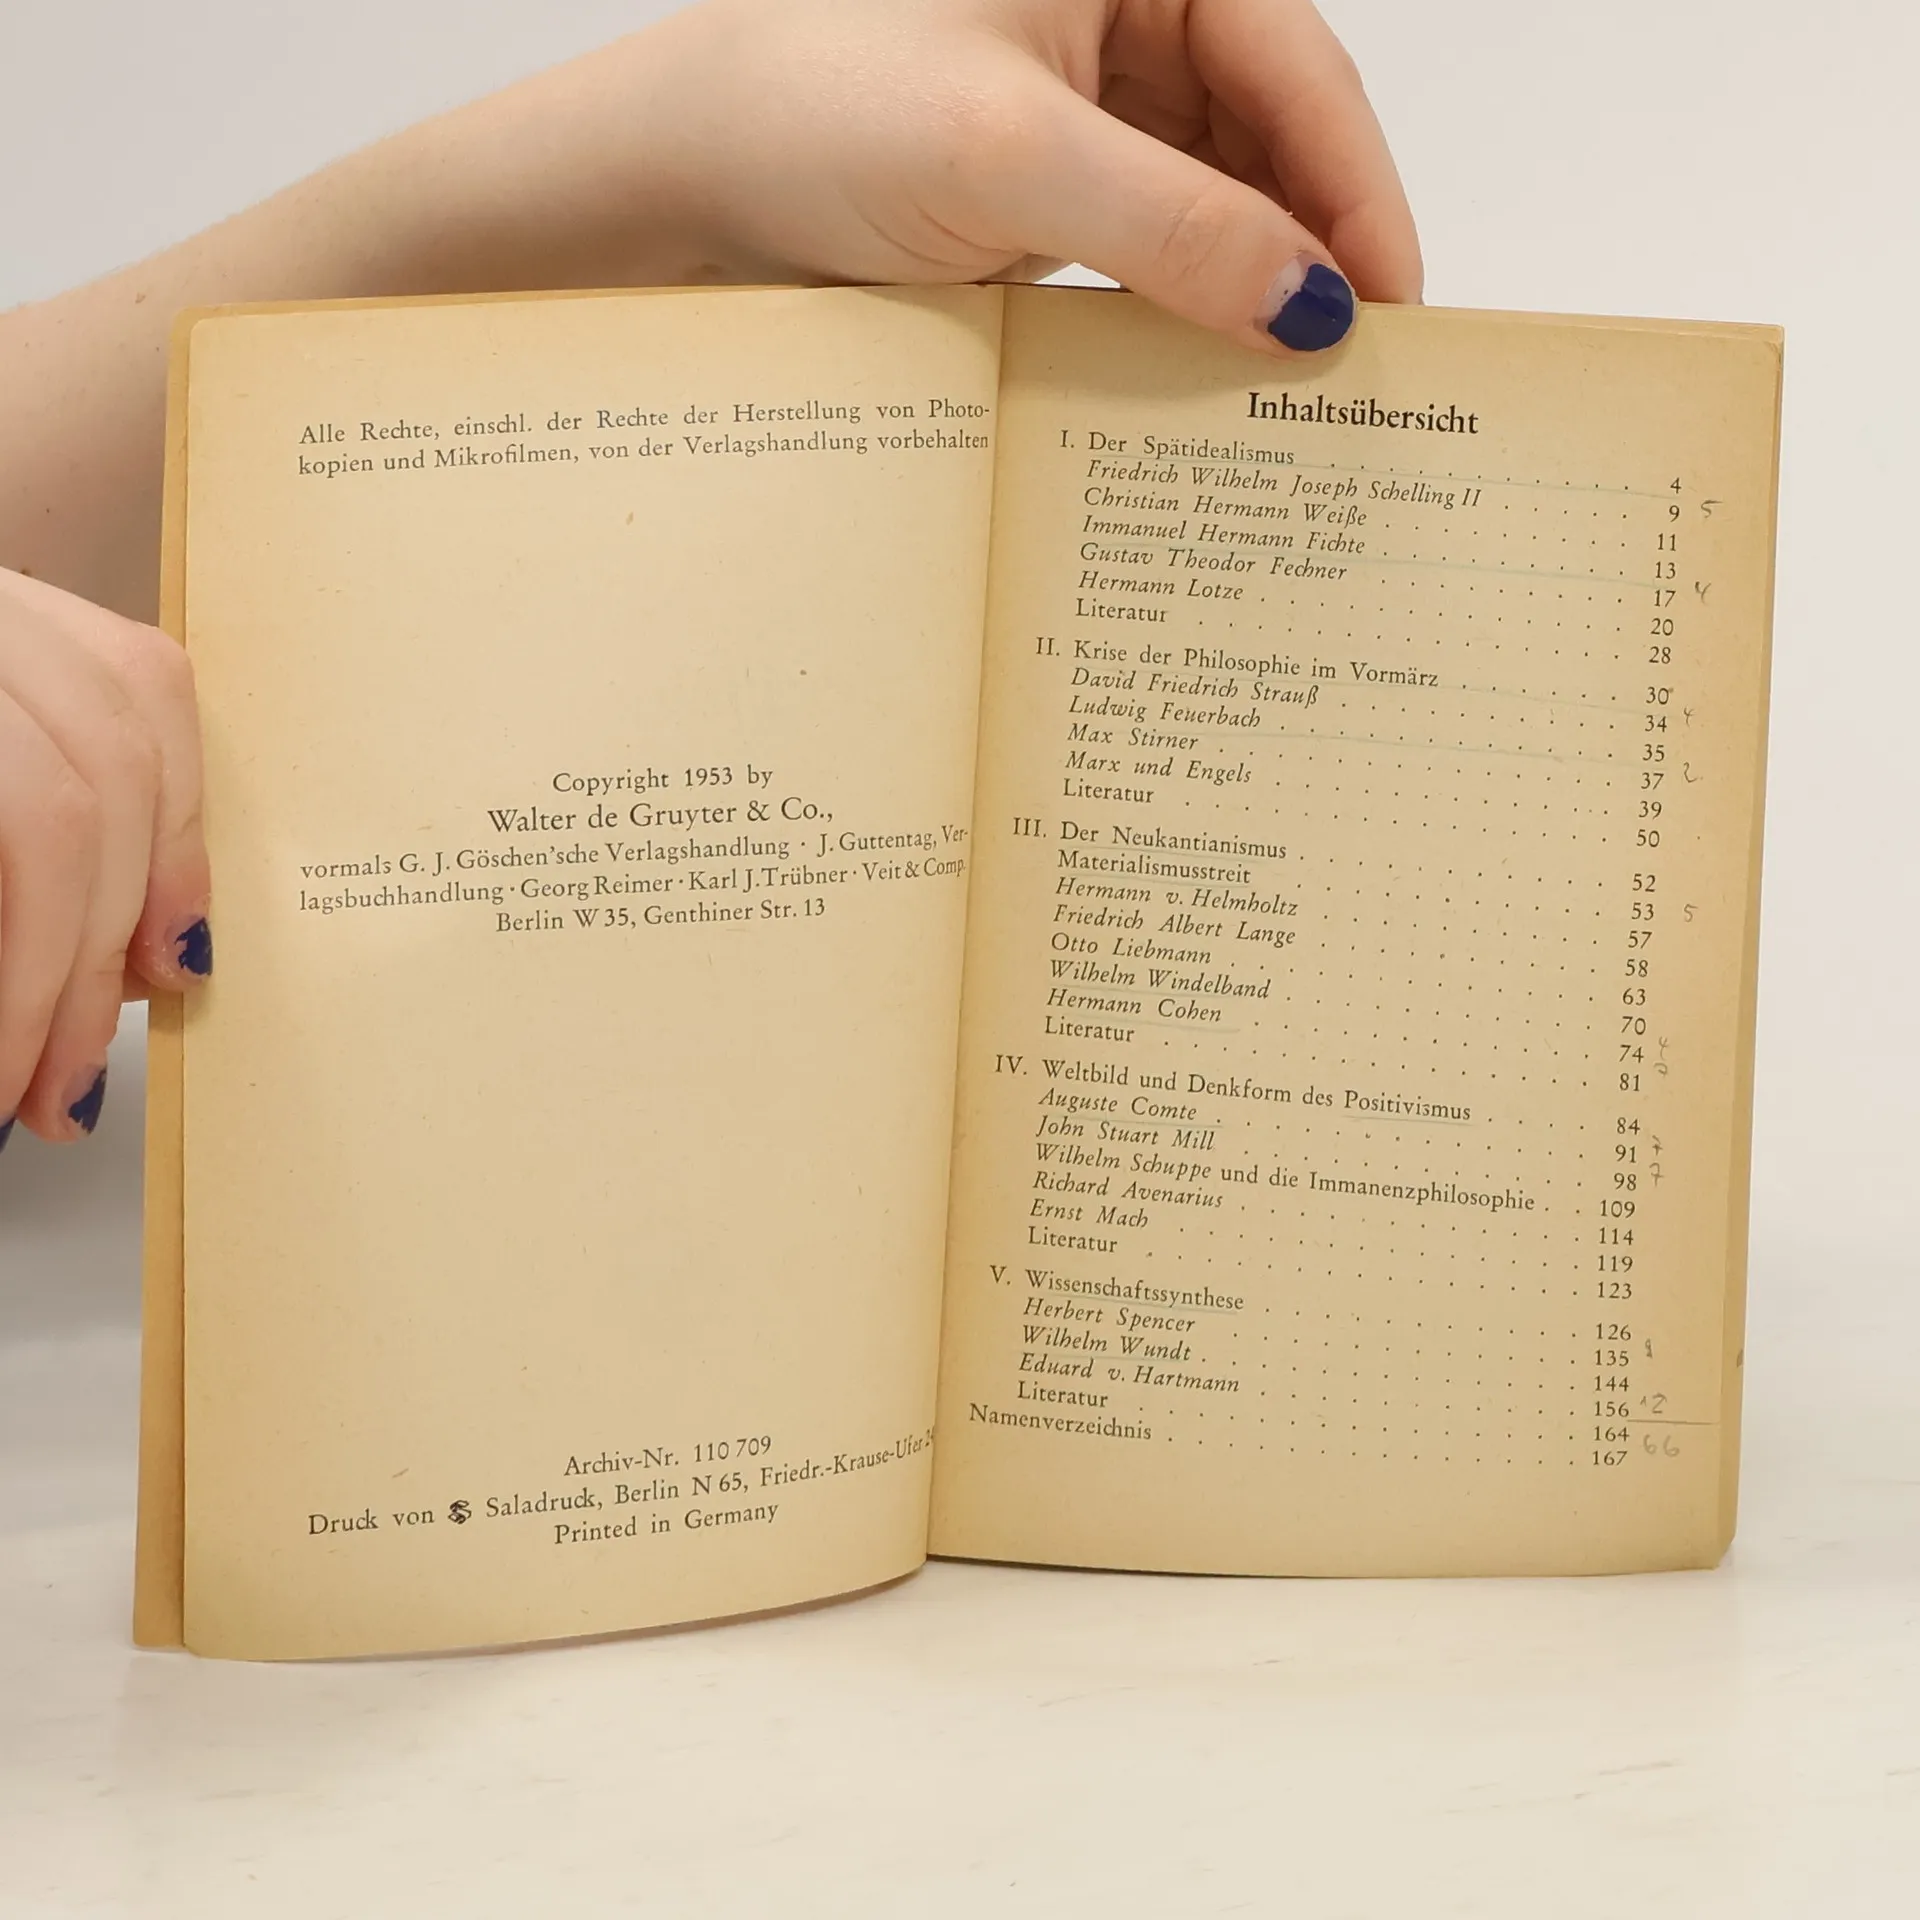 Alle Rechte, einschl. der Rechte der Herstellung von Photo-
kopien und Mikrofilmen, von der Verlagshandlung vorbehalten
Copyright 1953 by
Walter de Gruyter & Co.,
vormals G. J. Göschen'sche Verlagshandlung · J. Guttentag, Ver-
lagsbuchhandlung · Georg Reimer · Karl J. Trübner · Veit & Comp.
Berlin W 35, Genthiner Str. 13
Archiv-Nr. 110 709
Druck von Saladruck, Berlin N 65, Friedr.-Krause-Ufer 24
Printed in Germany
Inhaltsübersicht
I. Der Spätidealismus . . . . . . . . . 4
Friedrich Wilhelm Joseph Schelling II . . . . . 9 5
Christian Hermann Weiße . . . . . . . . 11
Immanuel Hermann Fichte . . . . . . . . 13
Gustav Theodor Fechner . . . . . . . . 17 4
Hermann Lotze . . . . . . . . . . . 20
Literatur . . . . . . . . . . . . 28
II. Krise der Philosophie im Vormärz . . . . . . 30
David Friedrich Strauß . . . . . . . . . 34 4
Ludwig Feuerbach . . . . . . . . . . 35
Max Stirner . . . . . . . . . . . . 37 2
Marx und Engels . . . . . . . . . . 39
Literatur . . . . . . . . . . . . 50
III. Der Neukantianismus . . . . . . . . . 52
Materialismusstreit . . . . . . . . . . 53 5
Hermann v. Helmholtz . . . . . . . . . 57
Friedrich Albert Lange . . . . . . . . . 58
Otto Liebmann . . . . . . . . . . . 63
Wilhelm Windelband . . . . . . . . . 70
Hermann Cohen . . . . . . . . . . . 74 4
Literatur . . . . . . . . . . . . 81
IV. Weltbild und Denkform des Positivismus . . . . 84
Auguste Comte . . . . . . . . . . . 91 7
John Stuart Mill . . . . . . . . . . 98 7
Wilhelm Schuppe und die Immanenzphilosophie . . 109
Richard Avenarius . . . . . . . . . . 114
Ernst Mach . . . . . . . . . . . . 119
Literatur . . . . . . . . . . . . 123
V. Wissenschaftssynthese . . . . . . . . . 126
Herbert Spencer . . . . . . . . . . . 135 9
Wilhelm Wundt . . . . . . . . . . . 144
Eduard v. Hartmann . . . . . . . . . 156 12
Literatur . . . . . . . . . . . . 164
Namenverzeichnis . . . . . . . . . . . 167 66